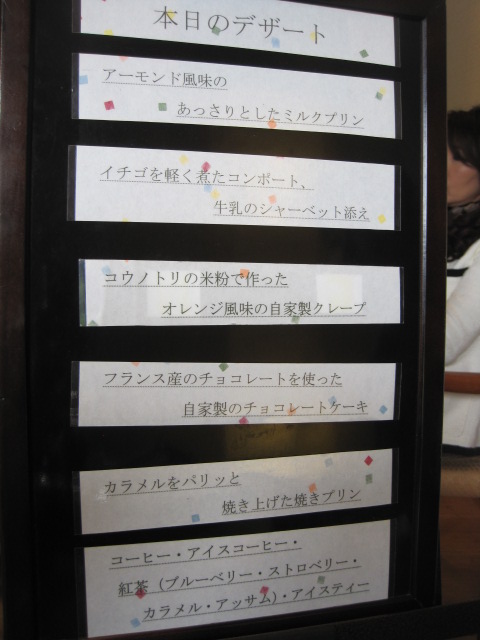 本日のデザート
アーモンド風味の
あっさりとしたミルクプリン
イチゴを軽く煮たコンポート、
牛乳のシャーベット添え
コウノトリの米粉で作った
オレンジ風味の自家製クレープ
フランス産のチョコレートを使った
自家製のチョコレートケーキ
カラメルをパリッと
焼き上げた焼きプリン
コーヒー・アイスコーヒー・
紅茶（ブルーベリー・ストロベリー・
カラメル・アッサム）・アイスティー